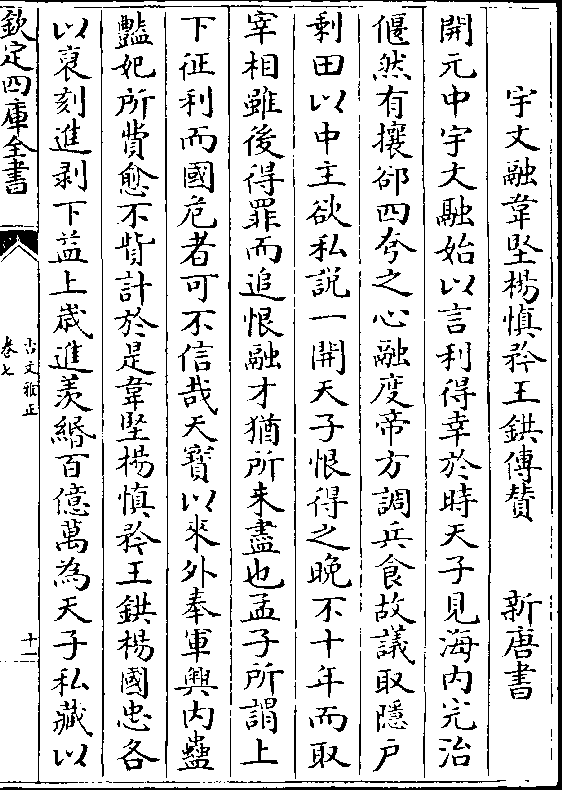 宇文融韋堅楊慎矜王鉷傳贊　新唐書
開元中宇文融始以言利得幸於時天子見海内完治
偃然有攘郤四夸之心融度帝方調兵食故議取隱户
剩田以中主欲私説一開天子恨得之晚不十年而取
宰相雖後得罪而追恨融才猶所未盡也孟子所謂上
下征利而國危者可不信哉天寳以來外奉軍興内蠱
豔妃所費愈不貲計於是韋堅楊慎矜王鉷楊國忠各
以裒刻進剥下益上歳進羡緡百億萬為天子私藏以
欽定四庫全書
古文雅正
卷七
十一